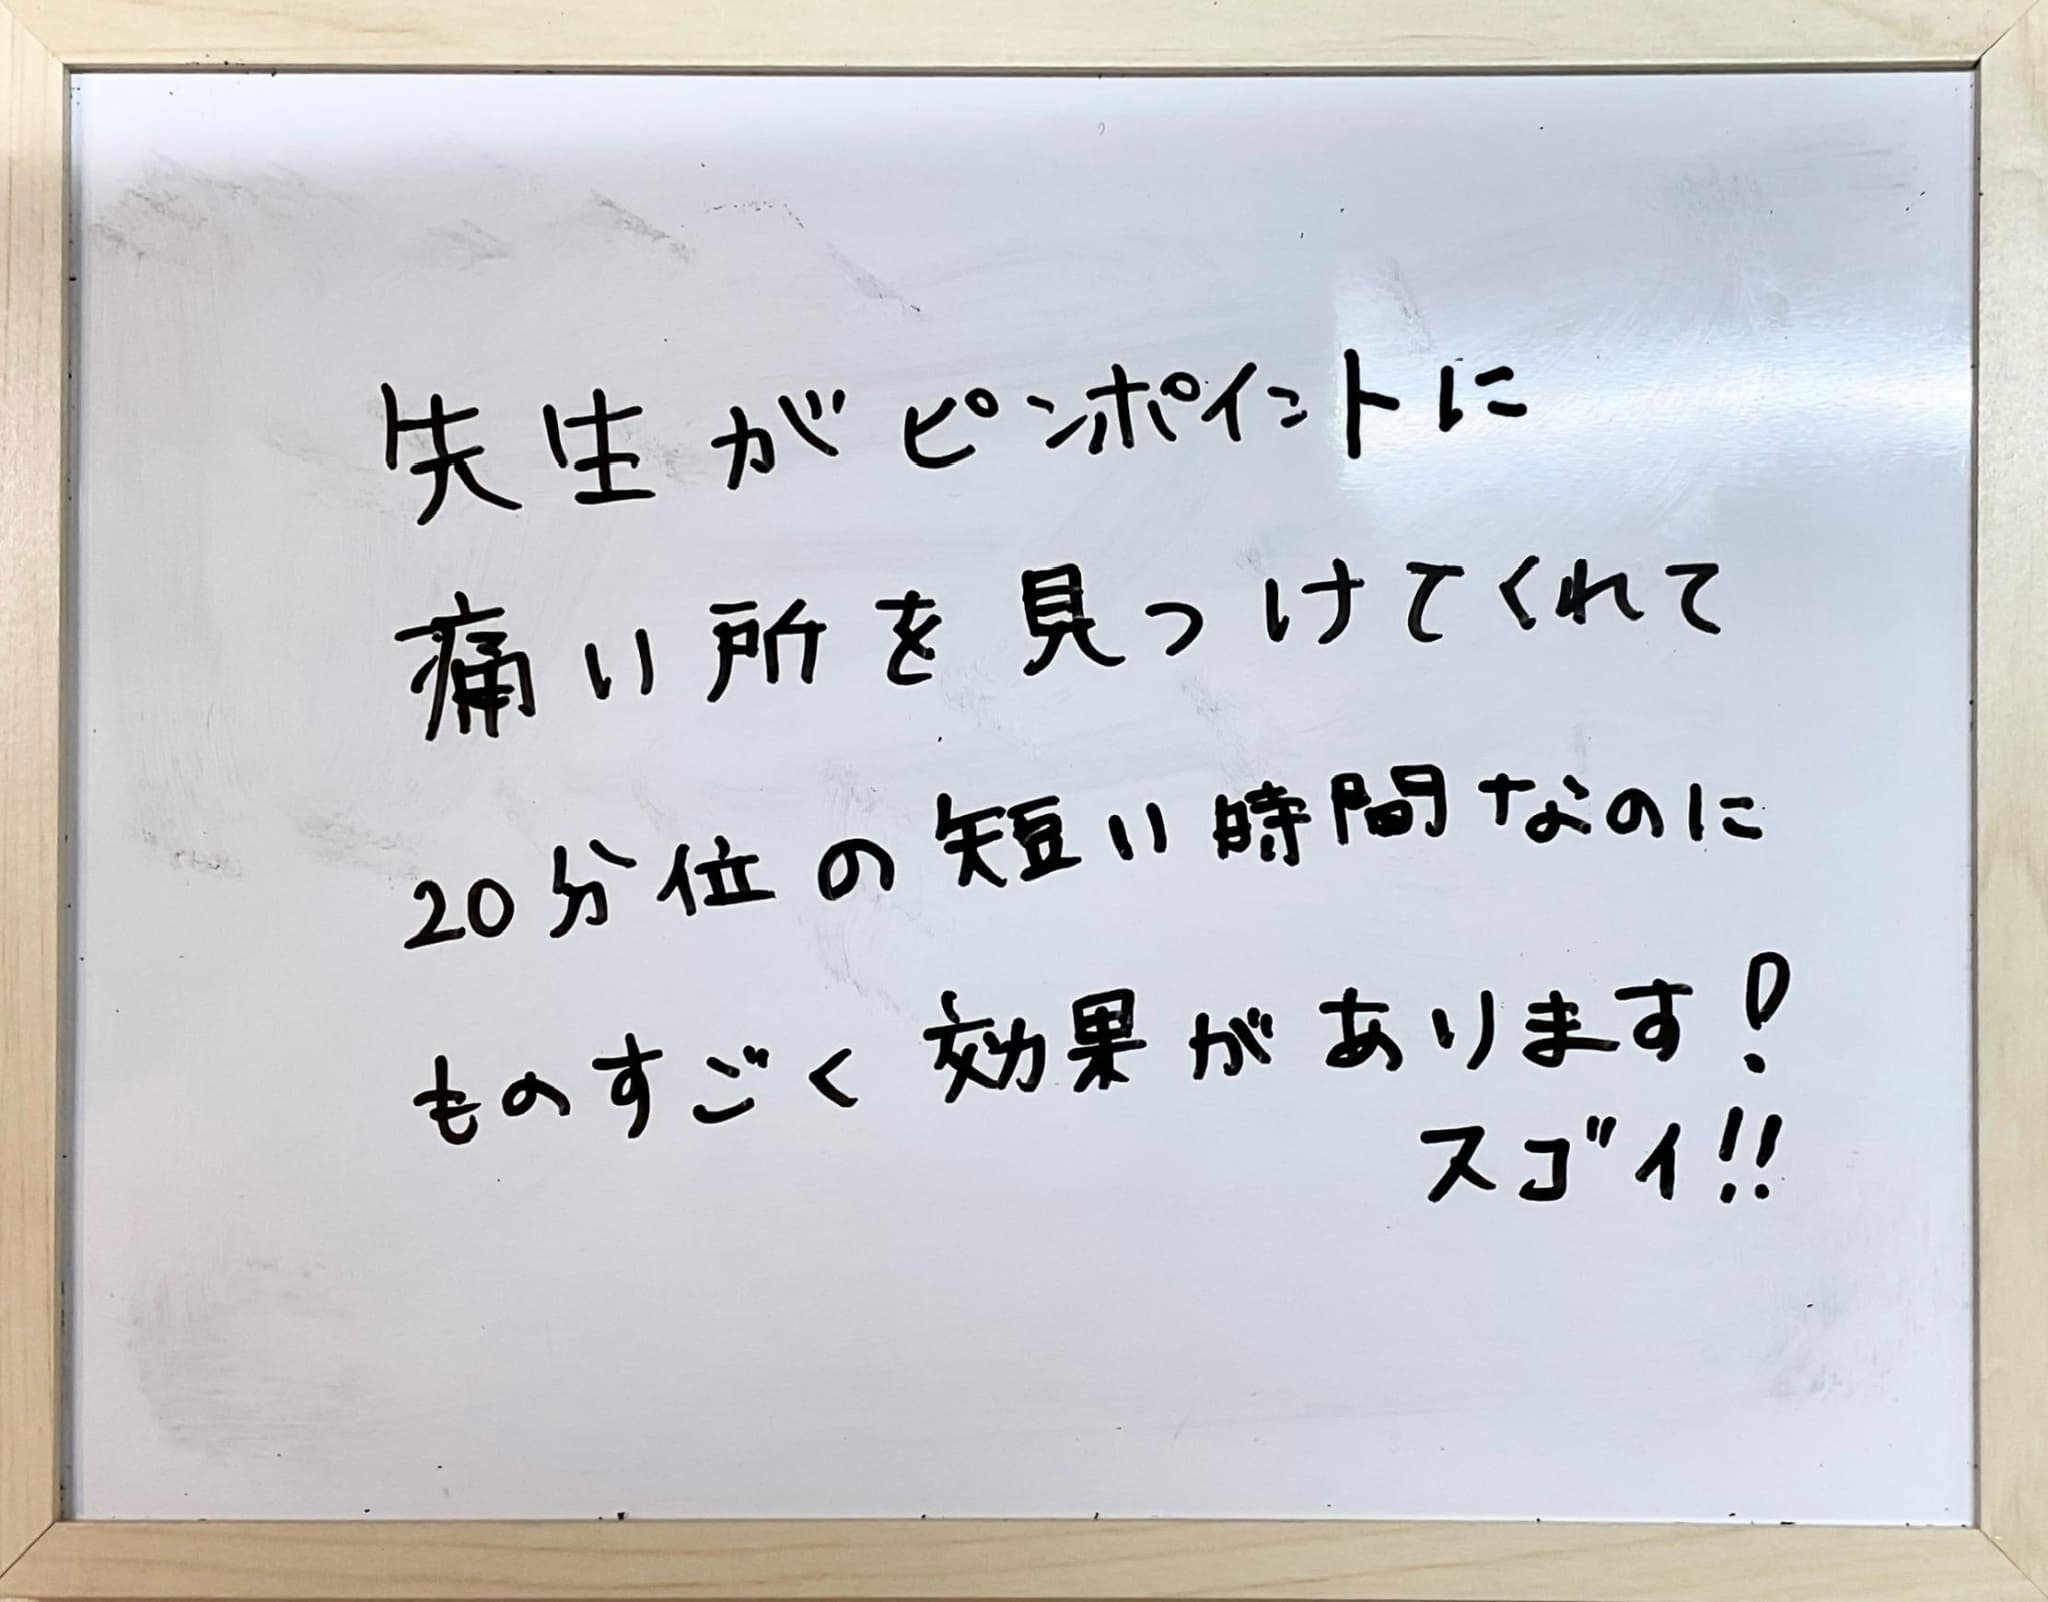 先生がピンポイントに
痛い所を見つけてくれて
20分位の短い時間なのに
ものすごく効果があります!
スゴイ!!